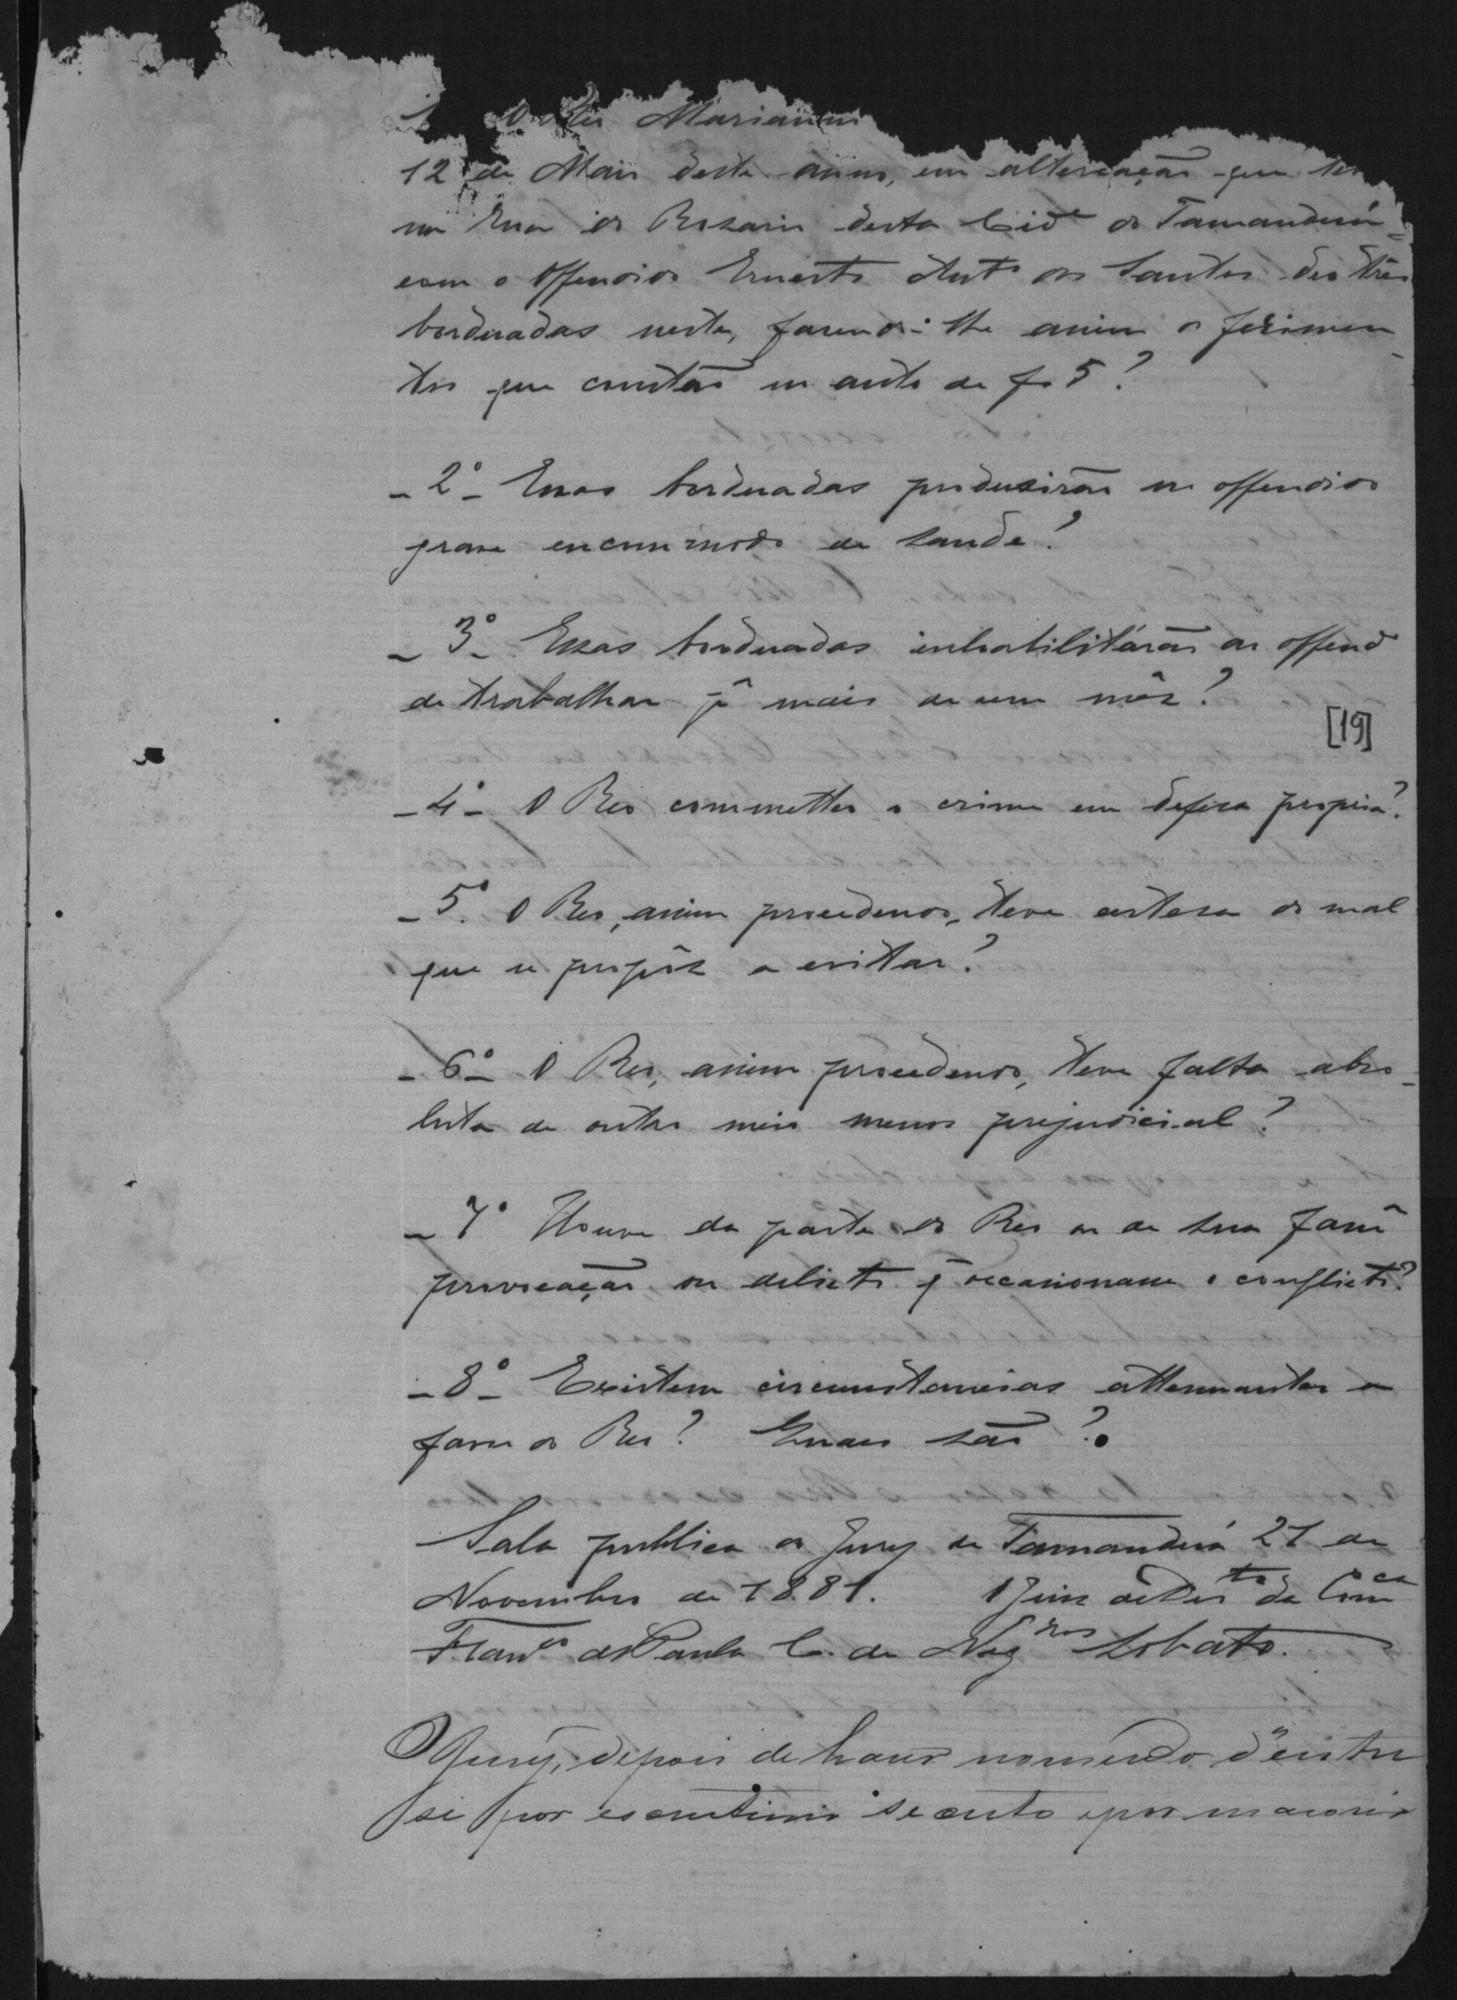 O Reo Marianno
12 de Maio deste anno, em altercação que te
na Rua do Rosario desta Cid.e do Tamanduá
com o offendido Ernesto Ant.o dos Santos deo três
borduadas neste, fasendo-lhe assim os ferimen
tos que constão no auto de fs 5?
- 2º - Essas borduadas produsirão no offendido
grave encommodo de saude?
- 3º - Essas borduadas inhabilitárão ao offend
de trabalhar p.r mais de um mês?
[19]
- 4º - O Reo commetteo o crime em defesa propria?
- 5º - O Reo, assim procedendo, teve certesa do mal
que se propôz a evitar?
- 6º - O Reo, assim procedendo, teve falta abso-
luta de outro meio menos prejudicial?
- 7º Houve da parte do Reo ou de sua fam.a
provocação ou delicto q̃ occasionasse o conflicto?
- 8º - Existem circumstancias attenuantes a
favor do Reo? Quaes são?
Sala publica do Jury de Tamanduá 21 de
Novembro de 1881. O Juiz de Dir.to da Com.ca
Fran.co de Paula C. de Neg.ros Lobato.
O Jury, depois de haver nomeado d'entre
si por escrutinio secreto e por maioria